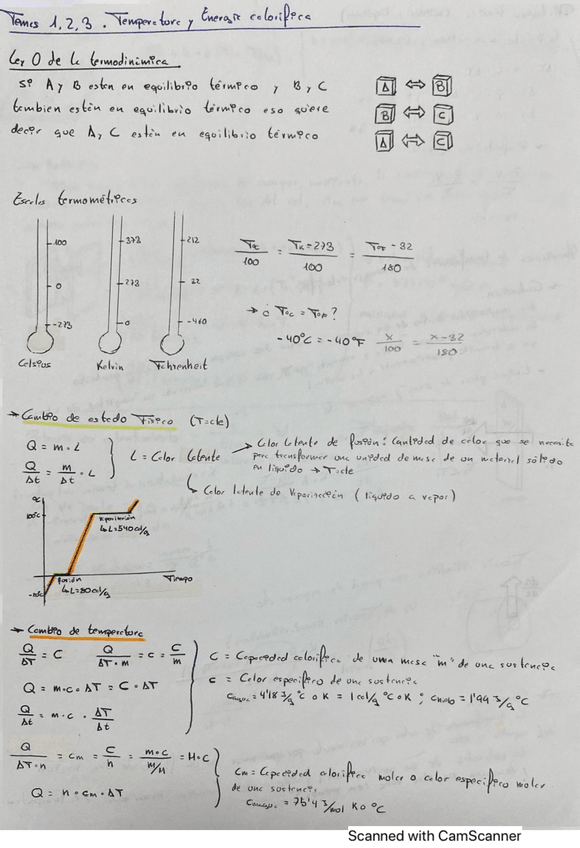 Temas 1, 2, 3. Temperatura y Energía calorífica
Ley 0 de la termodinámica
Si A y B están en equilibrio térmico y B y C
tambien están en equilibrio térmico eso quiere
decir que A y C están en equilibrio térmico
A ⇔ B
B ⇔ C
A ⇔ C
Escalas termométricas
100 373 212
0 273 32
-273 0 -460
Celsius Kelvin Fahrenheit
Tºc/100 = Tk-273/100 = TºF-32/180
→ ¿ Tºc = TºF?
-40ºC = -40ºF x/100 = x-32/180
→ Cambio de estado Físico (T=cte)
Q = m · L
Q/Δt = m/Δt · L
L = Calor latente
→ Calor latente de fusión: Cantidad de calor que se necesita
para transformar una unidad de masa de un material sólido
en líquido → T=cte
↳ Calor latente de vaporización (líquido a vapor)
ºC
100ºC
Vaporización
↳ L=540cal/g
Fusión
↳ L=80cal/g
Tiempo
→ Cambio de temperatura
Q/ΔT = C Q/ΔT·m = c = C/m
Q = m·c·ΔT = C·ΔT
Q/Δt = m·c · ΔT/Δt
C = Capacidad calorífica de una masa "m" de una sustancia
c = Calor específico de una sustancia
= 4'18 J/g ºC o K = 1 cal/g ºC o K ; = 1'94 J/g ºC
Q/ΔT·n = cm = C/n = m·c/m/M = M·c
Q = n·cm·ΔT
Cm = Capacidad calorífica molar o calor específico molar
de una sustancia
= 76'4 J/mol K o ºC
Scanned with CamScanner